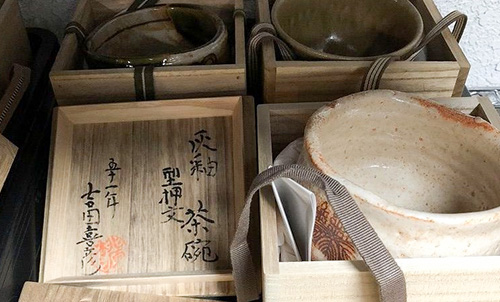 灰釉
型押文
茶碗
五十一年
吉田喜彦